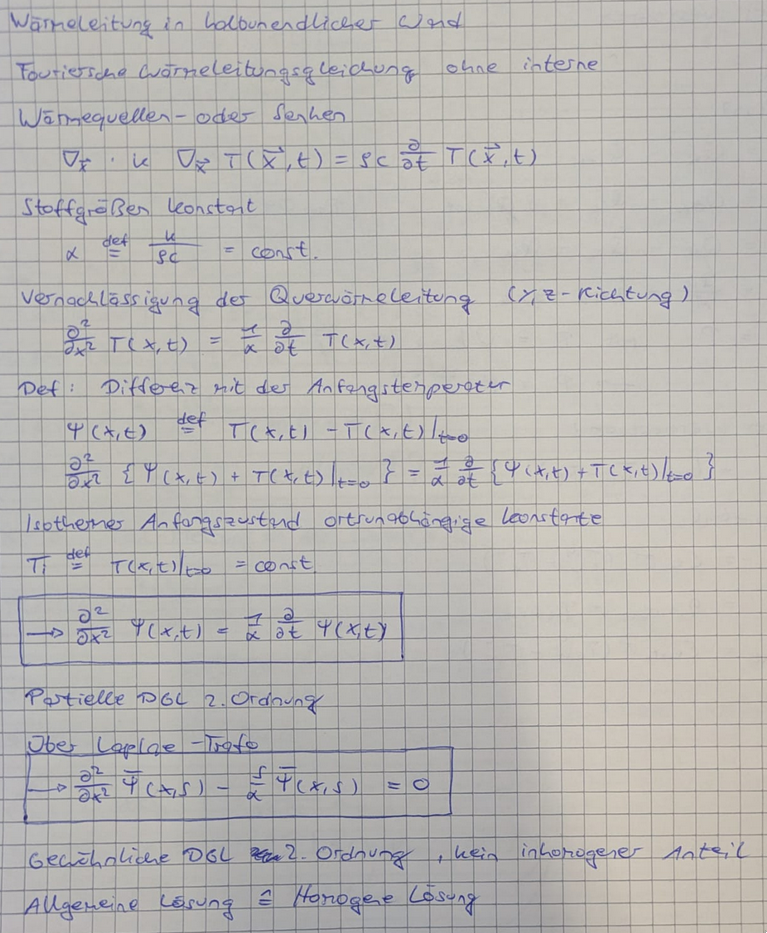 Wärmeleitung in halbunendlicher Wand
Fouriersche Wärmeleitungsgleichung ohne interne
Wärmequellen- oder Senken
∇x⃗ · k ∇x⃗ T(x⃗,t) = ρc ∂/∂t T(x⃗,t)
Stoffgrößen konstant
α def= k/ρc = const.
Vernachlässigung der Querwärmeleitung (y,z-Richtung)
∂²/∂x² T(x,t) = 1/α ∂/∂t T(x,t)
Def: Differenz mit der Anfangstemperatur
Ψ(x,t) def= T(x,t) - T(x,t)|t=0
∂²/∂x² {Ψ(x,t) + T(x,t)|t=0} = 1/α ∂/∂t {Ψ(x,t) + T(x,t)|t=0}
Isothermer Anfangszustand ortsunabhängige konstante
Ti def= T(x,t)|t=0 = const
→ ∂²/∂x² Ψ(x,t) = 1/α ∂/∂t Ψ(x,t)
Partielle DGL 2. Ordnung
Über Laplae-Trafo
→ ∂²/∂x² Ψ̅(x,s) - s/α Ψ̅(x,s) = 0
Gewöhnliche DGL 2. Ordnung, kein inhomogener Anteil
Allgemeine Lösung ≙ Homogene Lösung